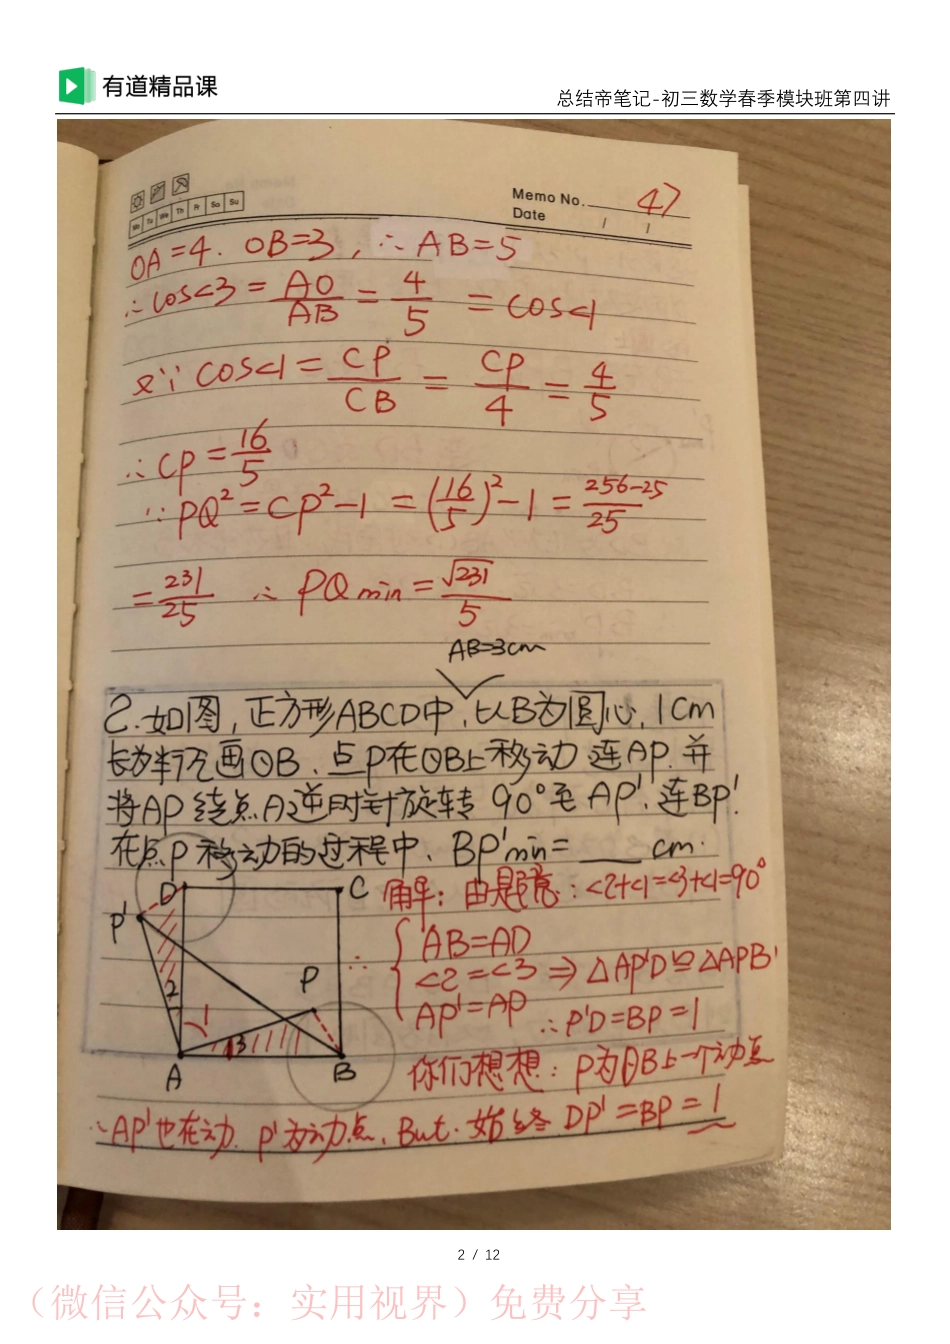 有道精品课
总结帝笔记-初三数学春季模块班第四讲
Mo Tu We Th Fr Sa Su
Memo No. 47
Date / /
OA=4. OB=3, ∴AB=5
∴cos∠3=AO/AB=4/5=cos∠1
又∵cos∠1=CP/CB=CP/4=4/5
∴CP=16/5
∵PQ²=CP²-1=(16/5)²-1=256-25/25
=231/25 ∴PQmin=√231/5
AB=3cm
2.如图,正方形ABCD中,以B为圆心,1cm
长为半径画⊙B、点P在⊙B上移动 连AP.并
将AP绕点A逆时针旋转90°至AP'、连BP'.
在点P移动的过程中、BP'min=___cm.
解:由题意:∠2+∠1=∠3+∠1=90°
∴{AB=AD
∠2=∠3 ⇒△AP'D≌△APB
AP'=AP
∴P'D=BP=1
你们想想:P为⊙B上一个动点
∴AP'也在动. P'为动点. But.始终DP'=BP=1
D
C
P'
P
2
1
3
A
B
2 / 12
(微信公众号:实用视界)免费分享